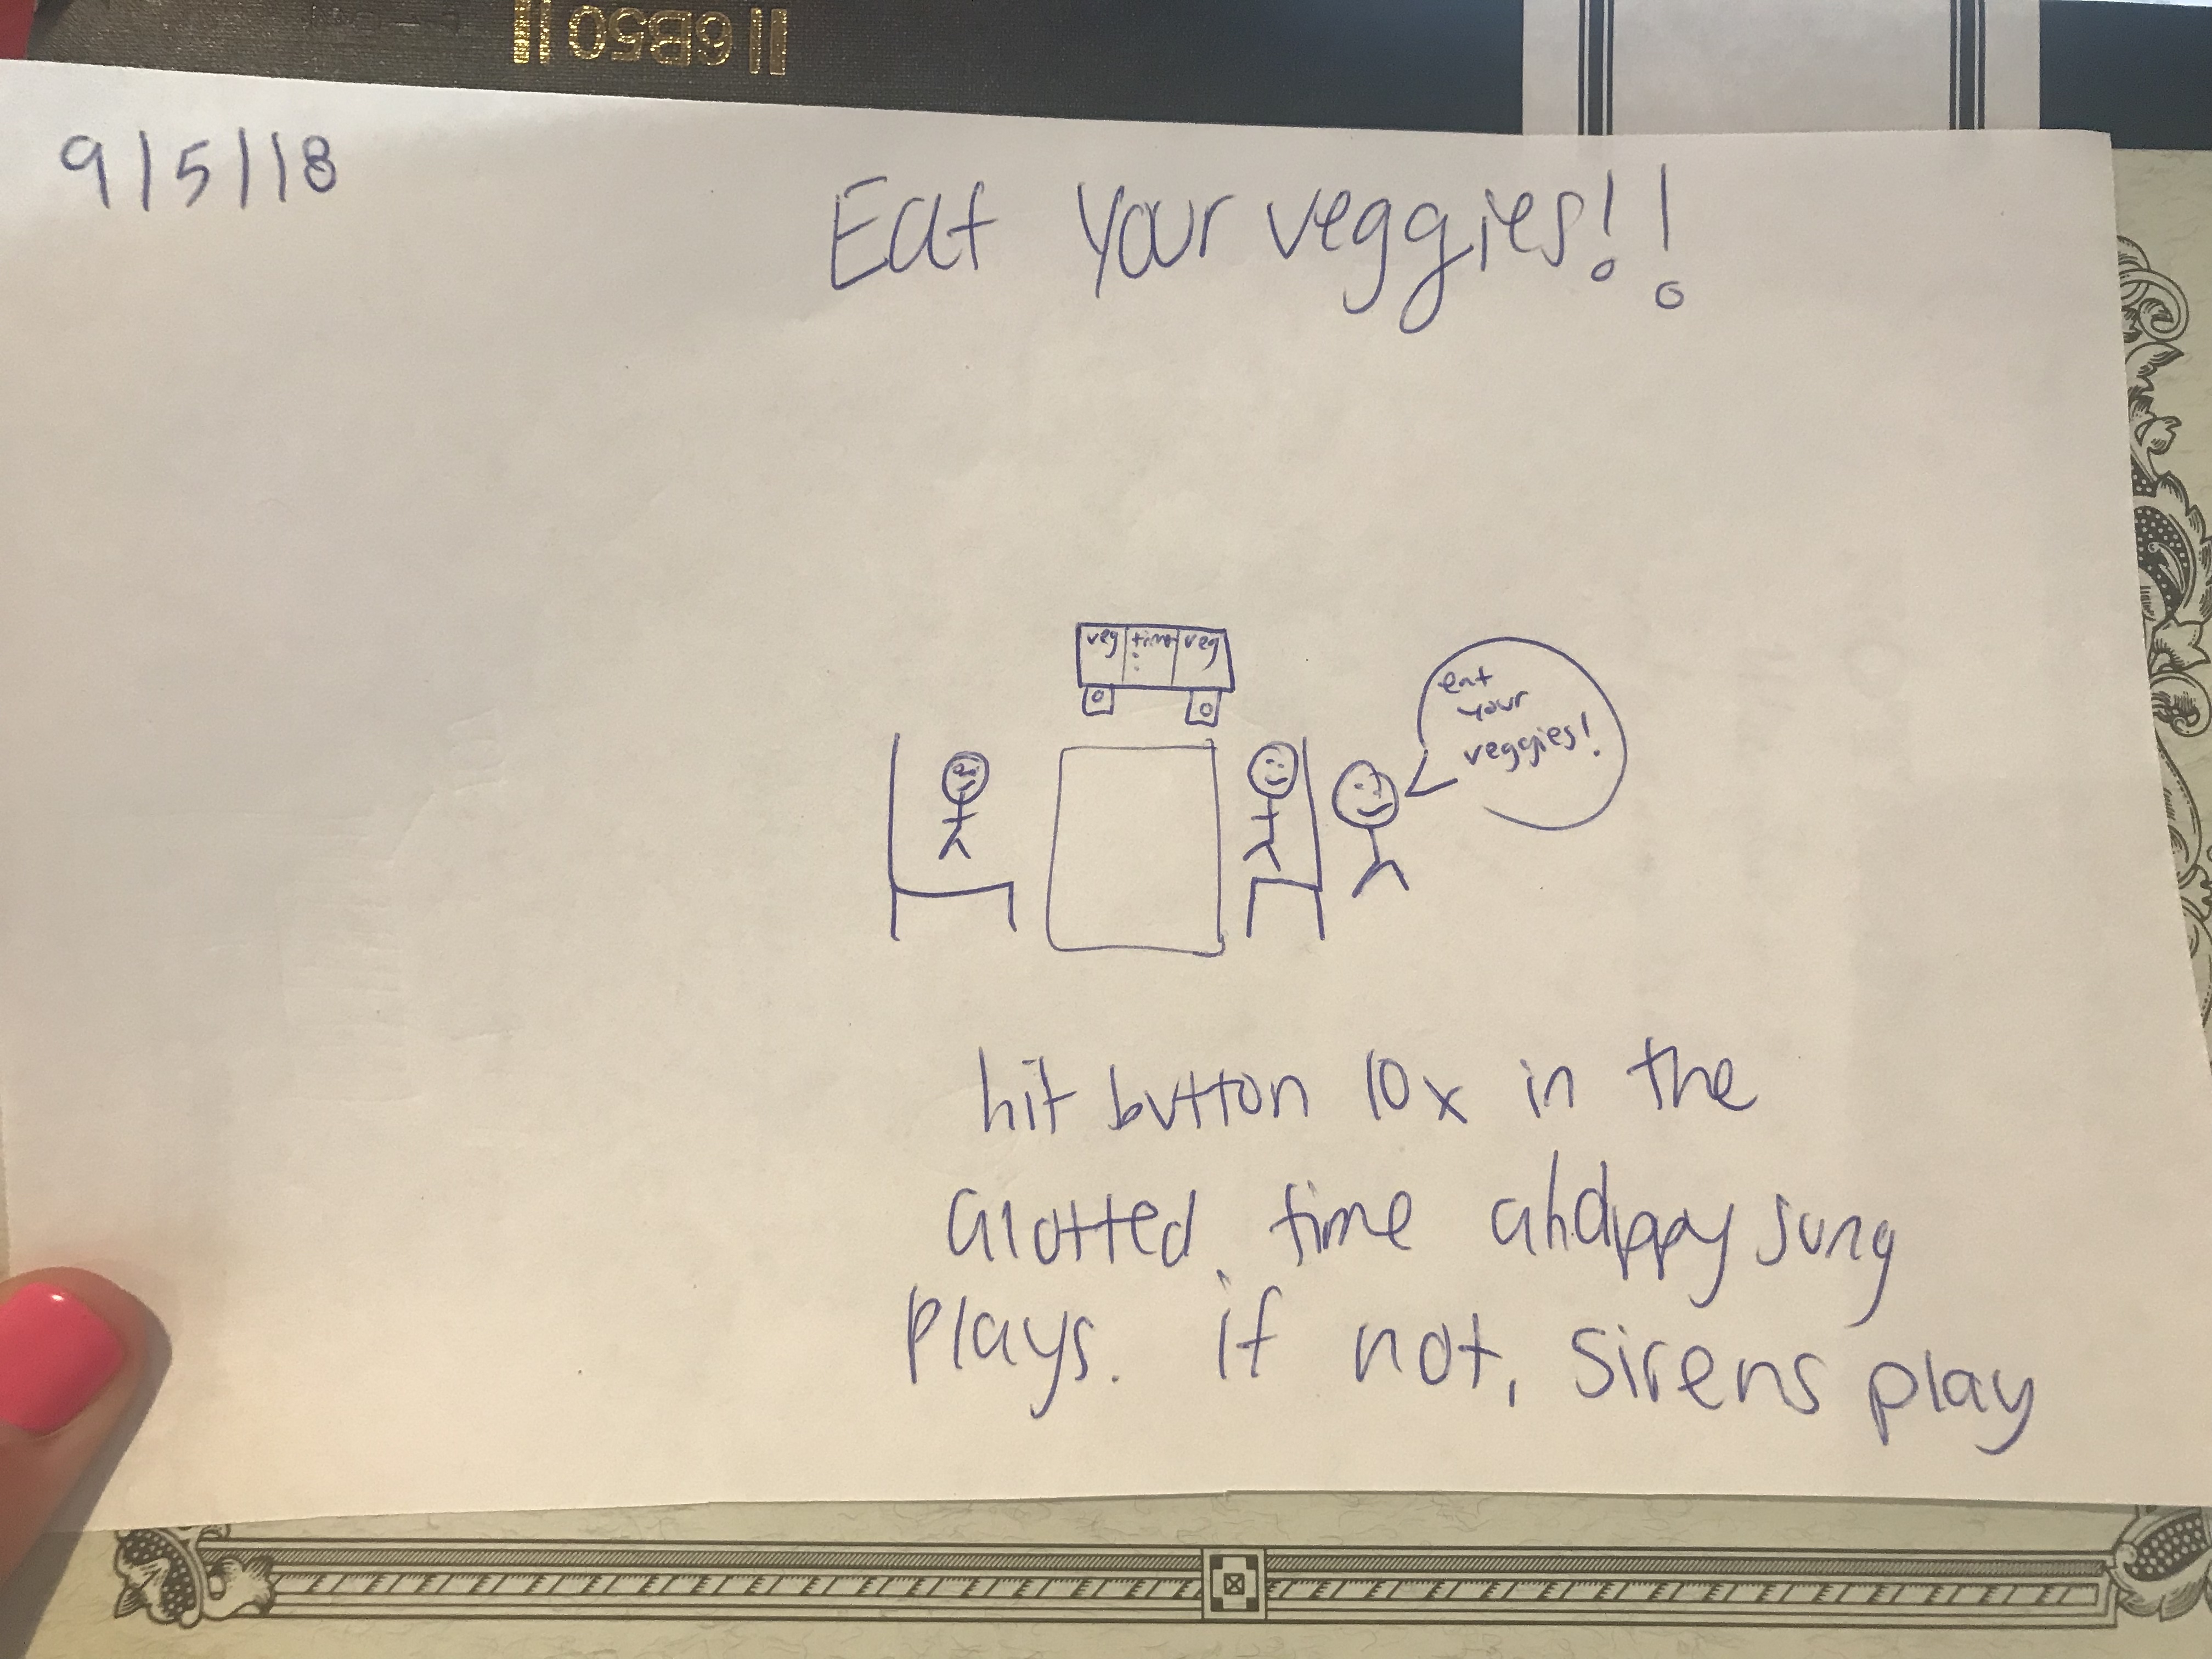 116B50 11
9/5/18
Eat your veggies!!
veg time veg
:
eat
your
veggies!
hit button 10x in the
alotted time ahdppy song
plays. if not, sirens play